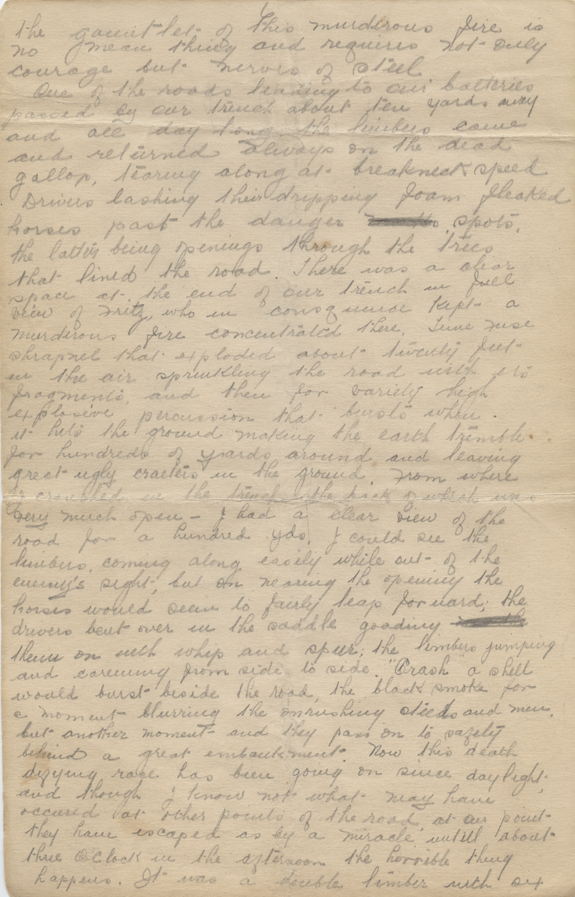 the gauntlet of this murderous fire is
no mean thing and requires not only
courage but nerves of steel
One of the roads leading to our batteries
passed by our trench about ten yards away
and all day long the limbers came
and returned always on the dead
gallop, tearing along at breakneck speed
Drivers lashing their dripping foam flecked
horses past the danger spots,
the latter being openings through the trees
that lined the road. There was a clear
space at the end of our trench in full
view of Fritz who in consequence kept a
murderous fire concentrated there. Time fuse
shrapnel that exploded about twenty feet
in the air sprinkling the road with its
fragments, and then for variety high
explosive percussion that bursts when
it hits the ground making the earth tremble
for hundreds of yards around and leaving
great ugly craters in the ground. From where
I crouched in the trench the back of which was
very much open – I had a clear view of the
road for a hundred yds. I could see the
limbers coming along easily while out of the
enemy's sight, but on nearing the opening the
horses would seem to fairly leap forward; the
drivers bent over in the saddle goading
them on with whip and spur; the limbers jumping
and careening from side to side. "Crash a shell
would burst beside the road, the black smoke for
a moment blurring the onrushing steeds and men,
but another moment and they pass on to safety
behind a great embankment. Now this death
defying race has been going on since daylight,
and though I know not what may have
occured at other points of the road, at our point
they have escaped as by a miracle, untill about
three OClock in the afternoon the horrible thing
happens. It was a double limber with six